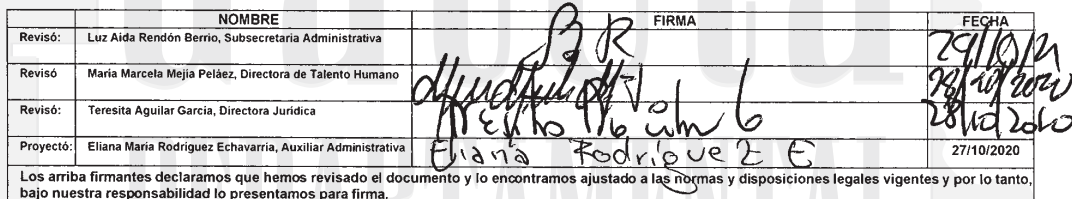 NOMBRE FIRMA FECHA
Revisó: Luz Aida Rendón Berrio, Subsecretaria Administrativa
Revisó María Marcela Mejía Peláez, Directora de Talento Humano 28/10/2020
Revisó: Teresita Aguilar García, Directora Jurídica 28/10/2020
Proyectó: Eliana María Rodríguez Echavarria, Auxiliar Administrativa Eliana Rodríguez E 27/10/2020
Los arriba firmantes declaramos que hemos revisado el documento y lo encontramos ajustado a las normas y disposiciones legales vigentes y por lo tanto,
bajo nuestra responsabilidad lo presentamos para firma.